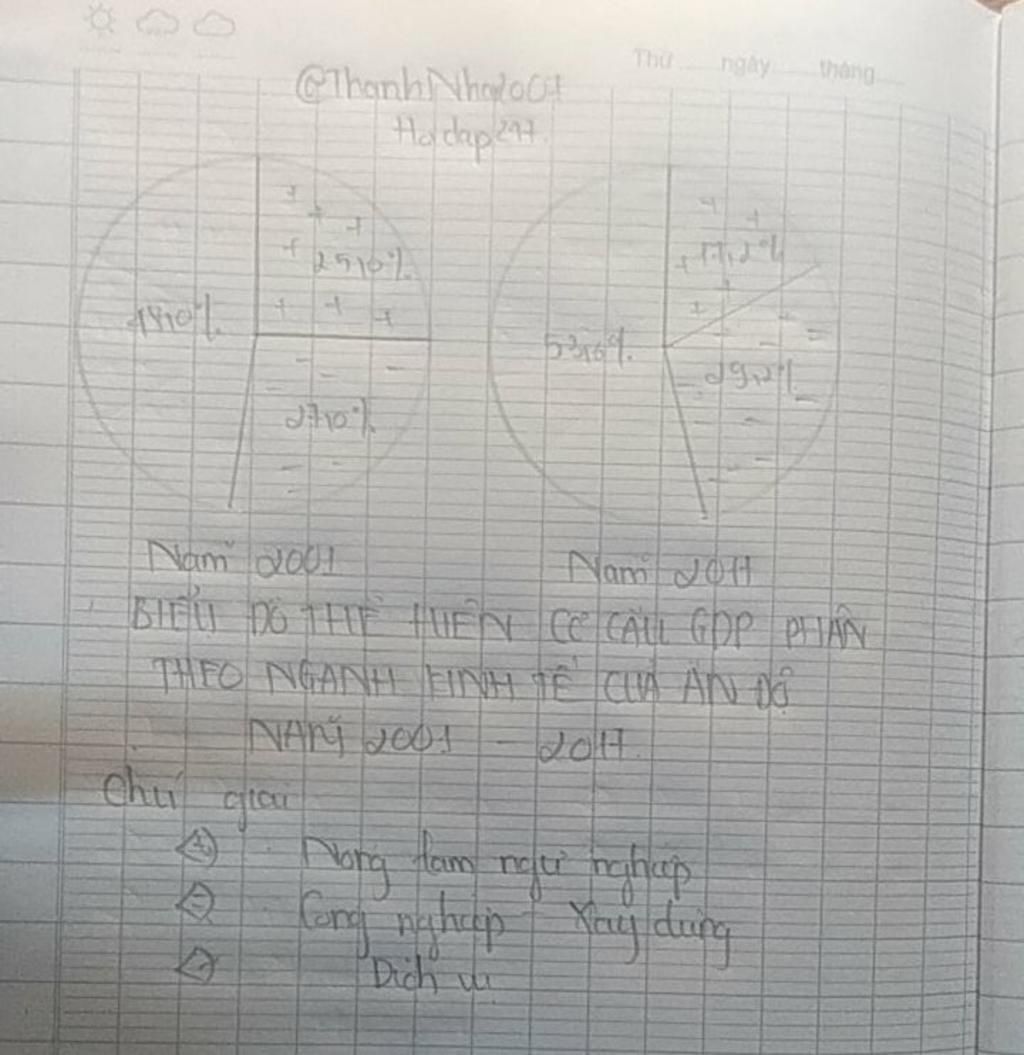 Thứ ngày tháng
@ThanhNha2001
Hoidap247
25,0%
17,2%
48,0%
53,6%
29,2%
27,0%
Năm 2001
Năm 2017
BIỂU ĐỒ THỂ HIỆN CƠ CẤU GDP PHÂN
THEO NGÀNH KINH TẾ CỦA ẤN ĐỘ
NĂM 2001 - 2017
Chú giải
Nông lâm ngư nghiệp
Công nghiệp - Xây dựng
Dịch vụ